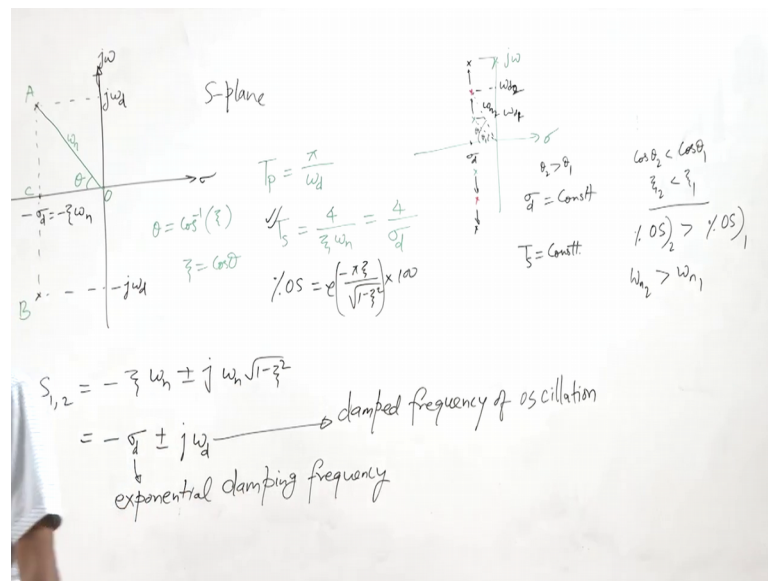 jω
A
jωd
S-plane
ωn
θ
C
O
σ
-σd = -ξωn
B
-jωd
θ = cos⁻¹(ξ)
ξ = cosθ
Tp = π/ωd
✓Ts = 4/ξωn = 4/σd
%OS = e^(-πξ/√1-ξ²) × 100
jω
ωd2
ωn2
ωd1
σ
σd
θ2 > θ1
σd = Constt
Ts = Constt.
cosθ2 < cosθ1
ξ2 < ξ1
%OS)2 > %OS)1
ωn2 > ωn1
S1,2 = - ξ ωn ± j ωn √1-ξ²
= - σd ± jωd
damped frequency of oscillation
exponential damping frequency